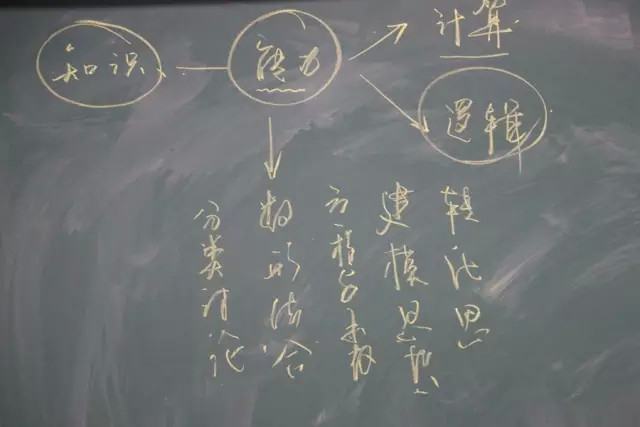 知识
能力
计算
逻辑
分类讨论
数形结合
方程与函数
建模思想
转化思